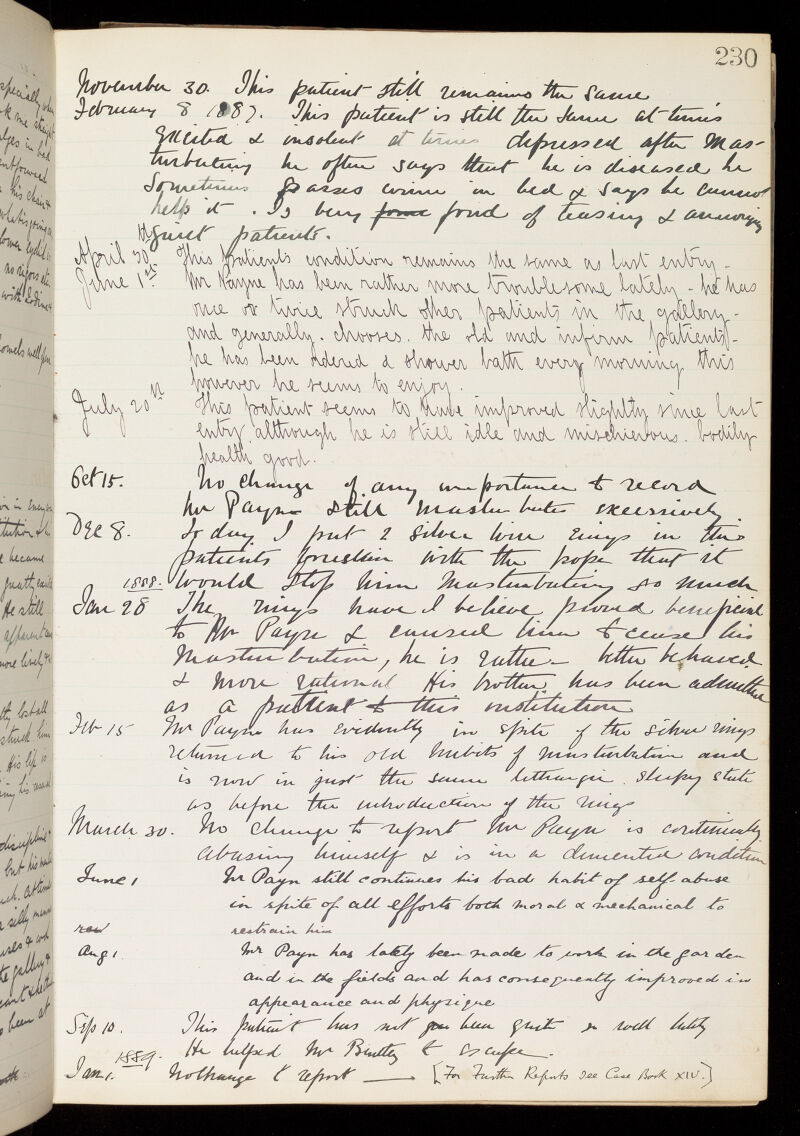 230
November 30. This patient still remains the same
February 8 1887. This patient is still the same at times
excited & insolent at times depressed after mas-
turbating he often says that he is diseased he
sometimes passes urine in bed & says he cannot
help it. Is very fond of teasing & annoying
quiet patients.
April 30th This patients condition remains the same as last entry.
June 1st Mr Payne has been rather more troublesome lately - he has
once or twice struck other patients in the gallery -
and generally chooses the old and infirm patients -
he has been ordered a shower bath every morning this
however he seems to enjoy.
July 20th This patient seems to have improved slightly since last
entry although he is still idle and mischievous. bodily
health good.
Oct 15. No change of any importance to record
Mr Payne still masturbates excessively
Dec 8. To day I put 2 silver wire rings in this
patients prepuce with the hope that it
would stop him masturbating so much
1888.
Jan 28 The rings have I believe proved beneficial
to Mr Payne & caused him to cease his
masturbation, he is rather better behaved
& more rational His brother has been admitted
as a patient to this institution
Feb 15 Mr Payne has evidently in spite of the silver rings
returned to his old habits of masturbation and
is now in just the same lethargic sleepy state
as before the introduction of the rings
March 30. No change to report Mr Payn is continually
abusing himself & is in a demented condition
June 1 Mr Payn still continues his bad habit of self-abuse
in spite of all efforts both moral & mechanical to
restrain him
Aug 1. Mr Payn has lately been made to work in the garden
and in the fields and has consequently improved in
appearance and physique
Sep 10. This patient has not been quite so well lately
He helped Mr Bentley to escape.
1889.
Jan 1. No change to report — [For Further Reports see Case Book XIV.]